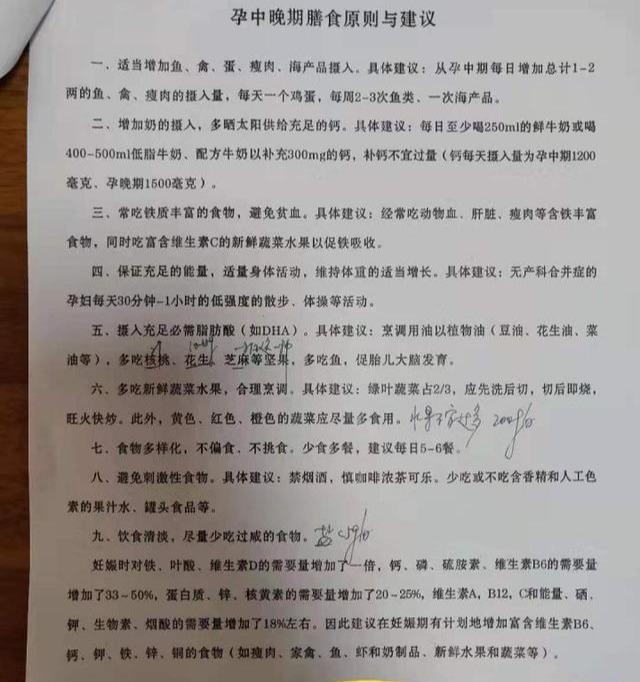 孕中晚期膳食原则与建议
一、适当增加鱼、禽、蛋、瘦肉、海产品摄入。具体建议：从孕中期每日增加总计1-2
两的鱼、禽、瘦肉的摄入量，每天一个鸡蛋，每周2-3次鱼类、一次海产品。
二、增加奶的摄入，多晒太阳供给充足的钙。具体建议：每日至少喝250ml的鲜牛奶或喝
400-500ml低脂牛奶、配方牛奶以补充300mg的钙，补钙不宜过量（钙每天摄入量为孕中期1200
毫克、孕晚期1500毫克）。
三、常吃铁质丰富的食物，避免贫血。具体建议：经常吃动物血、肝脏、瘦肉等含铁丰富
食物，同时吃富含维生素C的新鲜蔬菜水果以促铁吸收。
四、保证充足的能量，适量身体活动，维持体重的适当增长。具体建议：无产科合并症的
孕妇每天30分钟-1小时的低强度的散步、体操等活动。
五、摄入充足必需脂肪酸（如DHA）。具体建议：烹调用油以植物油（豆油、花生油、菜
油等），多吃核桃、花生、芝麻等坚果，多吃鱼，促胎儿大脑发育。
六、多吃新鲜蔬菜水果，合理烹调。具体建议：绿叶蔬菜占2/3，应先洗后切，切后即烧，
旺火快炒。此外，黄色、红色、橙色的蔬菜应尽量多食用。水果不宜过多 200g/日
七、食物多样化，不偏食、不挑食。少食多餐，建议每日5-6餐。
八、避免刺激性食物。具体建议：禁烟酒，慎咖啡浓茶可乐。少吃或不吃含香精和人工色
素的果汁水、罐头食品等。
九、饮食清淡，尽量少吃过咸的食物。盐<5g/日
妊娠时对铁、叶酸、维生素D的需要量增加了一倍，钙、磷、硫胺素、维生素B6的需要量
增加了33-50%，蛋白质、锌、核黄素的需要量增加了20-25%，维生素A，B12，C和能量、硒、
钾、生物素、烟酸的需要量增加了18%左右。因此建议在妊娠期有计划地增加富含维生素B6、
钙、钾、铁、锌、铜的食物（如瘦肉、家禽、鱼、虾和奶制品、新鲜水果和蔬菜等）。